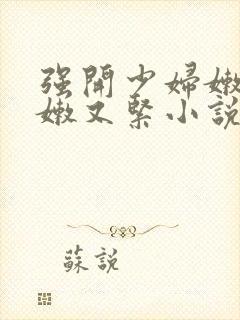 强開少婦嫩
嫩又緊小說
蘇說